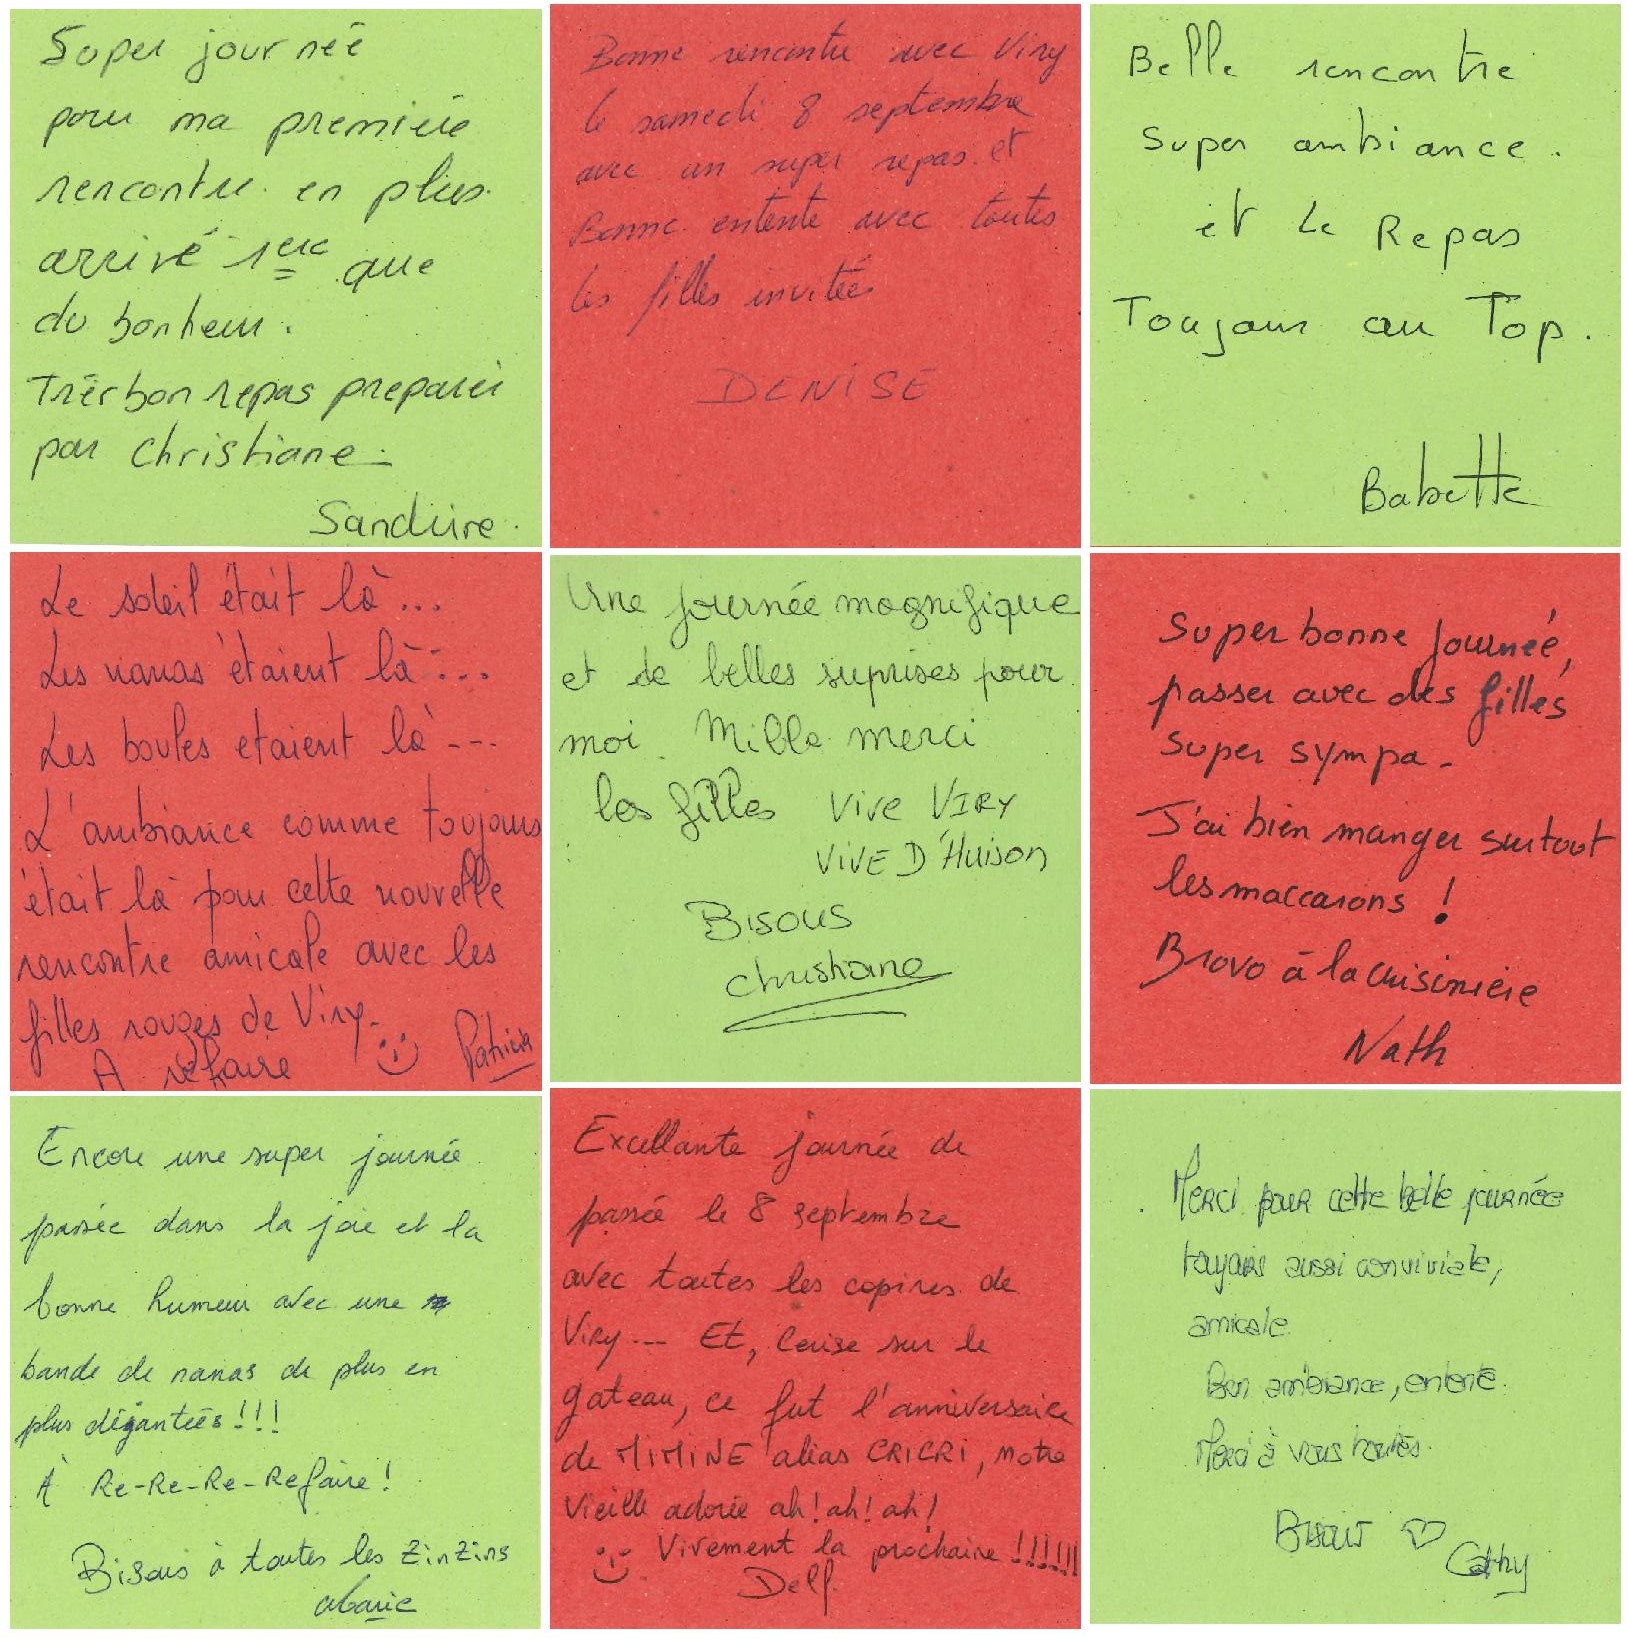 Super journeé
pour ma première
rencontre en plus
arrivé 1ere que
du bonheur.
Très bon repas preparer
par Christiane.
Sandrine.
Bonne rencontre avec Viry
le samedi 8 septembre
avec un super repas et
Bonne entente avec toutes
les filles invitées
DENISE
Belle rencontre
Super ambiance.
et le Repas
Toujour au Top.
Babette
Le soleil était là...
Les nanas étaient là...
Les boules etaient là...
L'ambiance comme toujours
était là pour cette nouvelle
rencontre amicale avec les
filles rouges de Viry.
A refaire
Patricia
Une journée magnifique
et de belles suprises pour
moi. Mille merci
les filles Vive VIRY
VIVE D'Huison
BISOUS
Christiane
Super bonne journeé,
passer avec des filles
super sympa.
J'ai bien manger surtout
les maccarons !
Bravo à la cuisinière
Nath
Encore une super journée
passée dans la joie et la
bonne humeur avec une
bande de nanas de plus en
plus déjantées!!!
À Re-Re-Re-Refaire!
Bisous à toutes les ZinZins
Excellante journée de
passée le 8 septembre
avec toutes les copines de
Viry --- Et, cerise sur le
gateau, ce fut l'anniversaire
de MIMINE alias CRICRI, notre
vieille adorée ah! ah! ah!
Vivement la prochaine !!!!!!
Delf.
Merci pour cette belle journée
toujours aussi conviviale,
amicale.
Bon ambiance, entente.
Merci à vous toutes.
Bisous ♡
Cathy